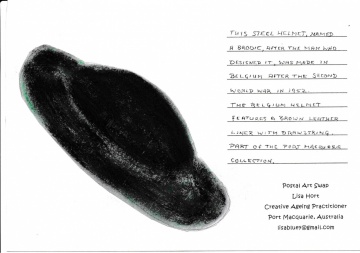 THIS STEEL HELMET, NAMED
A BRODIE, AFTER THE MAN WHO
DESIGNED IT, WAS MADE IN
BELGIUM AFTER THE SECOND
WORLD WAR IN 1952.
THE BELGIUM HELMET
FEATURES A BROWN LEATHER
LINER WITH DRAWSTRING.
PART OF THE PORT MACQUARIE
COLLECTION.
Postal Art Swap
Lisa Hort
Creative Ageing Practitioner
Port Macquarie, Australia
lisabluey@gmail.com